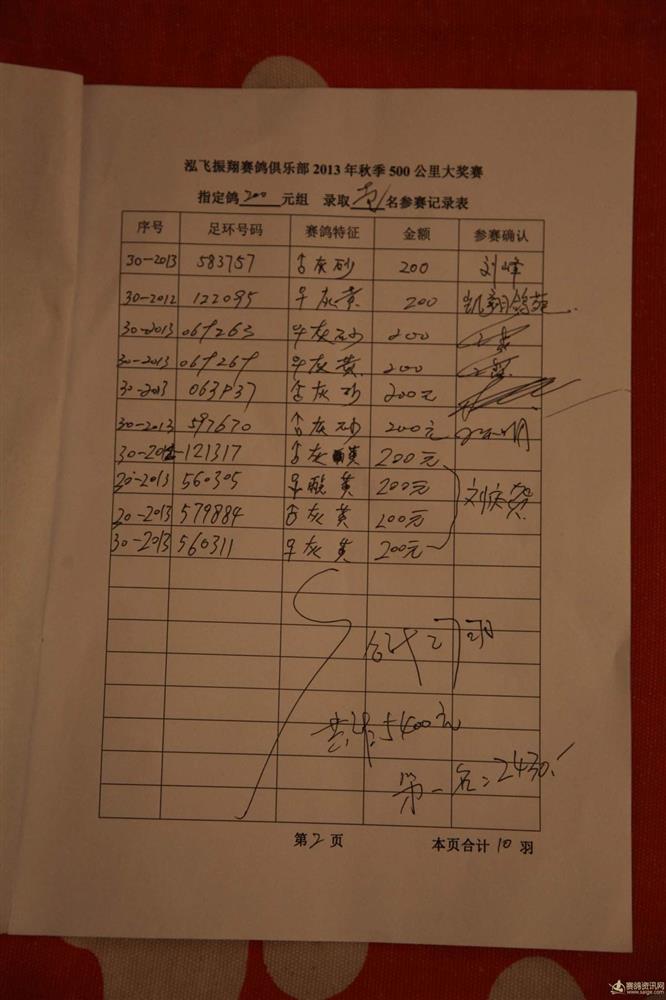 泓飞振翔赛鸽俱乐部2013年秋季500公里大奖赛
指定鸽 200 元组 录取 名参赛记录表
序号 足环号码 赛鸽特征 金额 参赛确认
30-2013 583757 灰砂 200 刘峰
30-2012 122095 灰黄 200 凯翔鸽苑
30-2013 069263 灰砂 200
30-2013 069269 灰黄 200
30-2013 063937 灰砂 200元
30-2013 597670 灰砂 200元
30-2012 121317 灰 黄 200元
20-2013 560305 黄 200元 刘庆贺
20-2013 579884 灰黄 200元
30-2013 560311 灰黄 200元
合计 羽
共计: 5400元
第一名: 2430.
第2页 本页合计 10 羽
赛鸽资讯网
www.saige.com